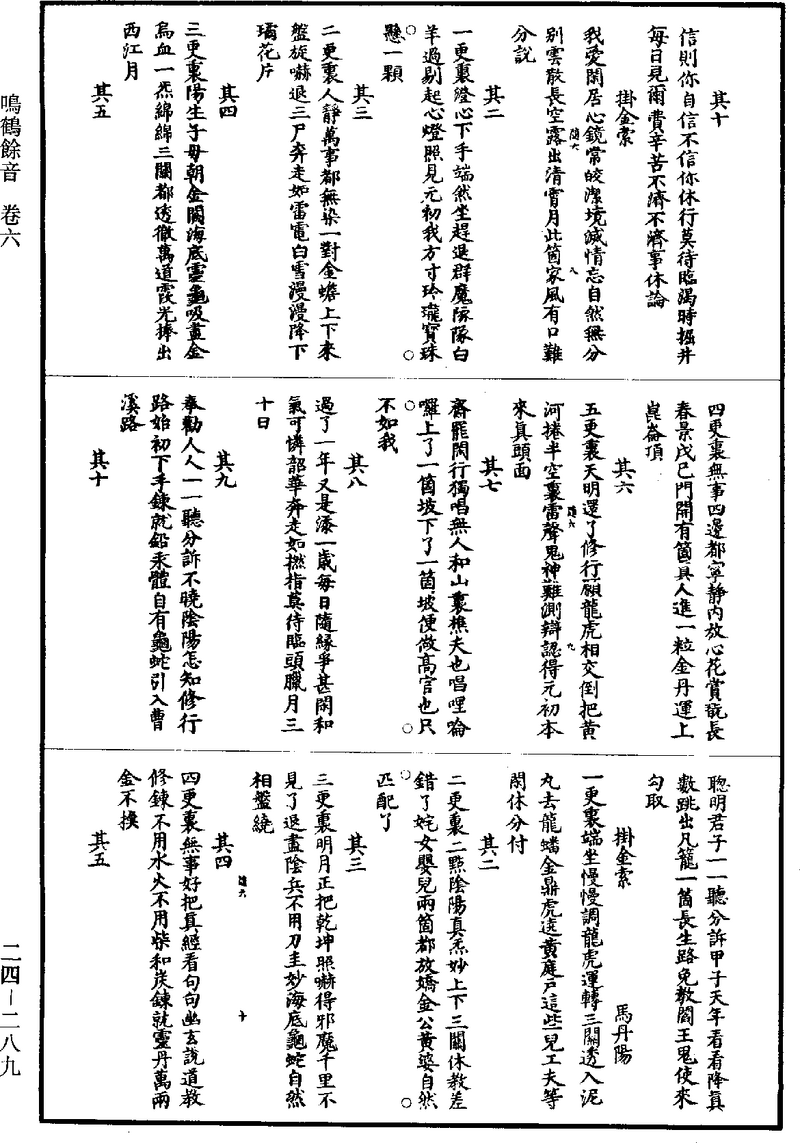 其十
信則你自信不信你休行莫待臨渴時掘井
每日見爾費辛苦不濟不濟事休論
掛金索
我愛閑居心鏡常皎潔境滅情忘自然無分
別雲散長空露出清霄月此箇家風有口難
分說
其二
一更裏澄心下手端然坐趕退群魔隊隊白
羊過剔起心燈照見元初我方寸玲瓏寶珠
懸一顆
其三
二更裏人靜萬事都無染一對金蟾上下來
盤旋嚇退三尸奔走如雷電白雪漫漫降下
瓊花片
其四
三更裏陽生子母朝金闕海底靈龜吸盡金
烏血一炁綿綿三關都透徹萬道霞光捧出
西江月
其五
四更裏無事四邊都寧靜內放心花賞翫長
春景戊己門開有箇真人進一粒金丹運上
崑崙頂
其六
五更裏天明還了修行願龍虎相交倒把黃
河捲半空裏雷聲鬼神難測辯認得元初本
來真頭面
其七
齋罷閑行獨唱無人和山裏樵夫也唱哩啰
囉上了一箇坡下了一箇坡便做高官也只
不如我
其八
過了一年又是添一歲每日隨緣爭甚閑和
氣可憐韶華奔走如撚指莫待臨頭臘月三
十日
其九
奉勸人人一一聽分訴不曉陰陽怎知修行
路始初下手鍊就鉛汞體自有龜蛇引入曹
溪路
其十
聰明君子一一聽分訴甲子天年看看降真
數跳出凡籠一箇長生路免教閻王鬼使來
勾取
掛金索 馬丹陽
一更裏端坐慢慢調龍虎運轉三關透入泥
丸去龍蟠金鼎虎遶黃庭戶這些兒工夫等
閑休分付
其二
二更裏二點陰陽真炁妙上下三關休教差
錯了姹女嬰兒兩箇都放嬌金公黃婆自然
匹配了
其三
三更裏明月正把乾坤照嚇得邪魔千里不
見了退盡陰兵不用刀圭妙海底龜蛇自然
相盤繞
其四
四更裏無事好把真經看句句幽玄說道教
修鍊不用水火不用柴和炭鍊就靈丹萬兩
金不換
其五
鳴鶴餘音 卷六
二四－二八九